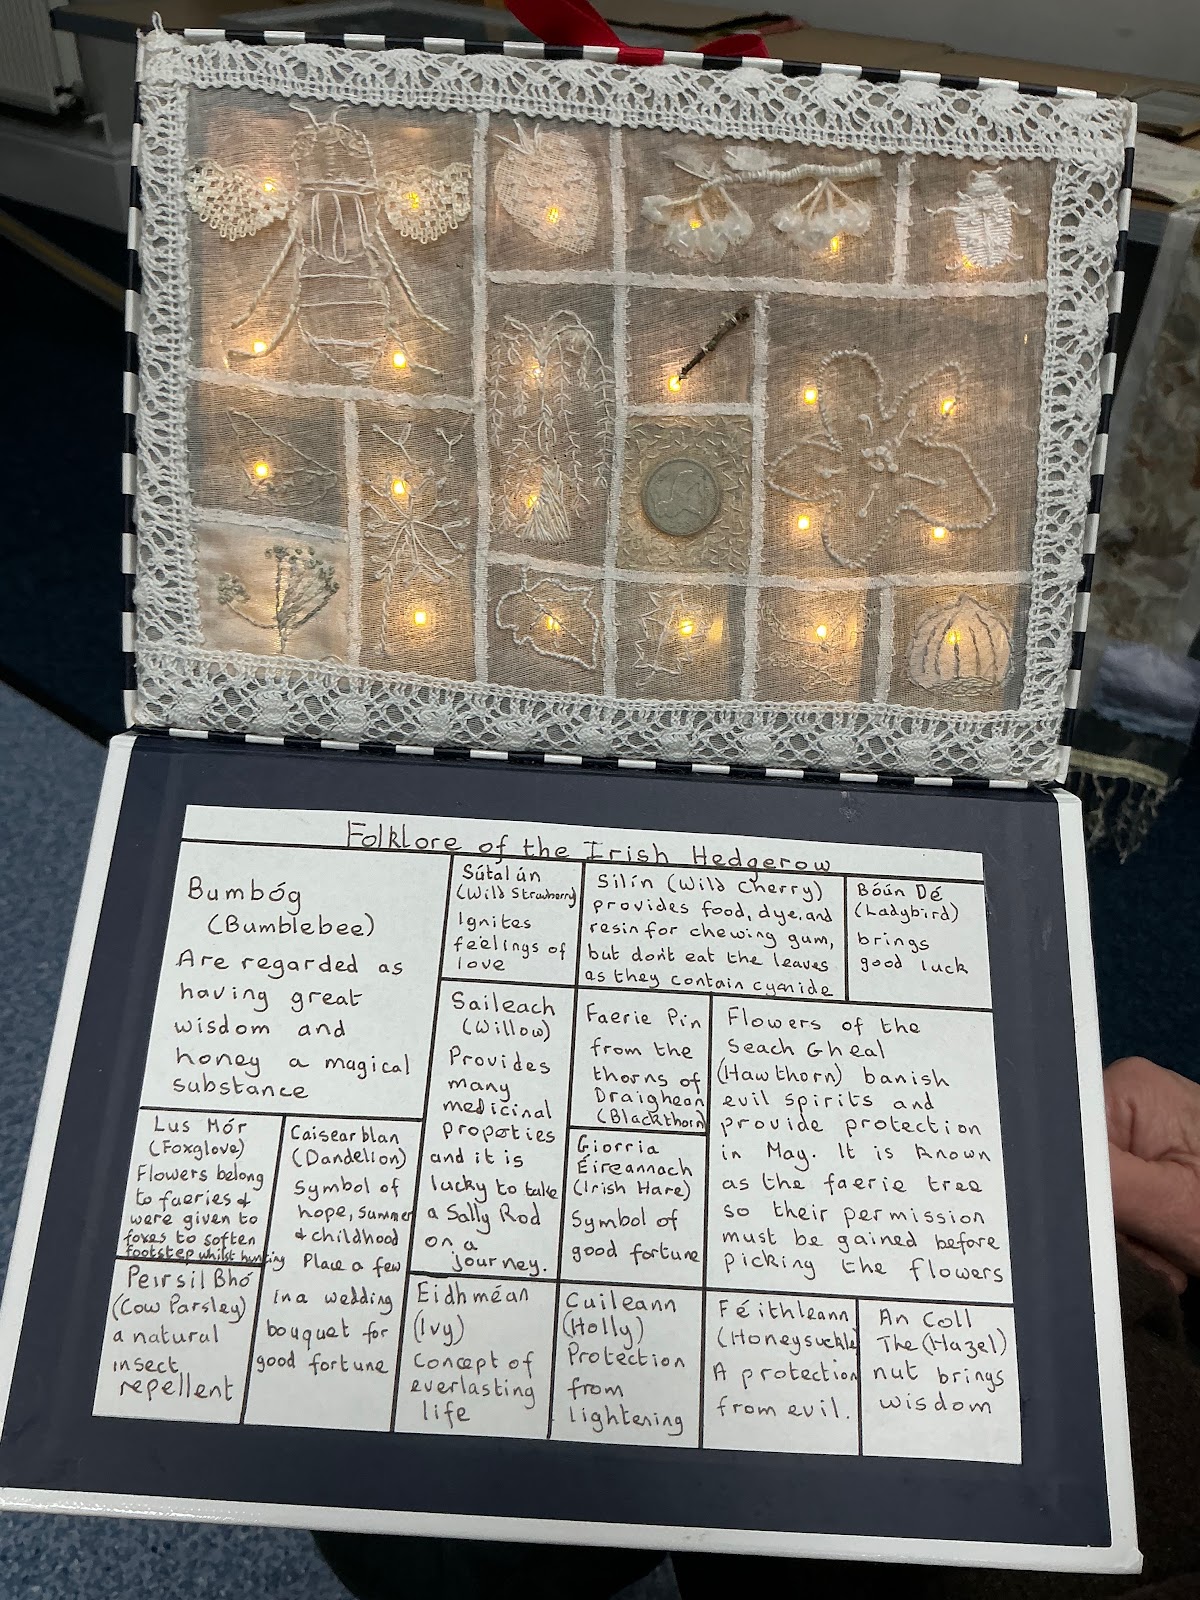 Folklore of the Irish Hedgerow
Bumbóg
(Bumblebee)
Are regarded as
having great
wisdom and
honey a magical
substance
Sútal ún
(Wild Strawberry)
Ignites
feelings of
love
Silín (Wild Cherry)
provides food, dye, and
resin for chewing gum,
but don't eat the leaves
as they contain cyanide
Bóún Dé
(Ladybird)
brings
good luck
Saileach
(Willow)
Provides
many
medicinal
propeties
and it is
lucky to take
a Sally Rod
on a
journey.
Faerie Pin
from the
thorns of
Draighean
(Blackthorn)
Flowers of the
Seach Gheal
(Hawthorn) banish
evil spirits and
provide protection
in May. It is known
as the faerie tree
so their permission
must be gained before
picking the flowers
Lus Mór
(Foxglove)
Flowers belong
to faeries &
were given to
foxes to soften
footstep whilst hunting
Caisearblan
(Dandelion)
Symbol of
hope, summer
& childhood
Place a few
in a wedding
bouquet for
good fortune
Giorria
Éireannach
(Irish Hare)
Symbol of
good fortune
Peirsil Bhó
(Cow Parsley)
a natural
insect
repellent
Eidhméan
(Ivy)
Concept of
everlasting
life
Cuileann
(Holly)
Protection
from
lightening
Féithleann
(Honeysuckle
A protection
from evil.
An Coll
The (Hazel)
nut brings
wisdom